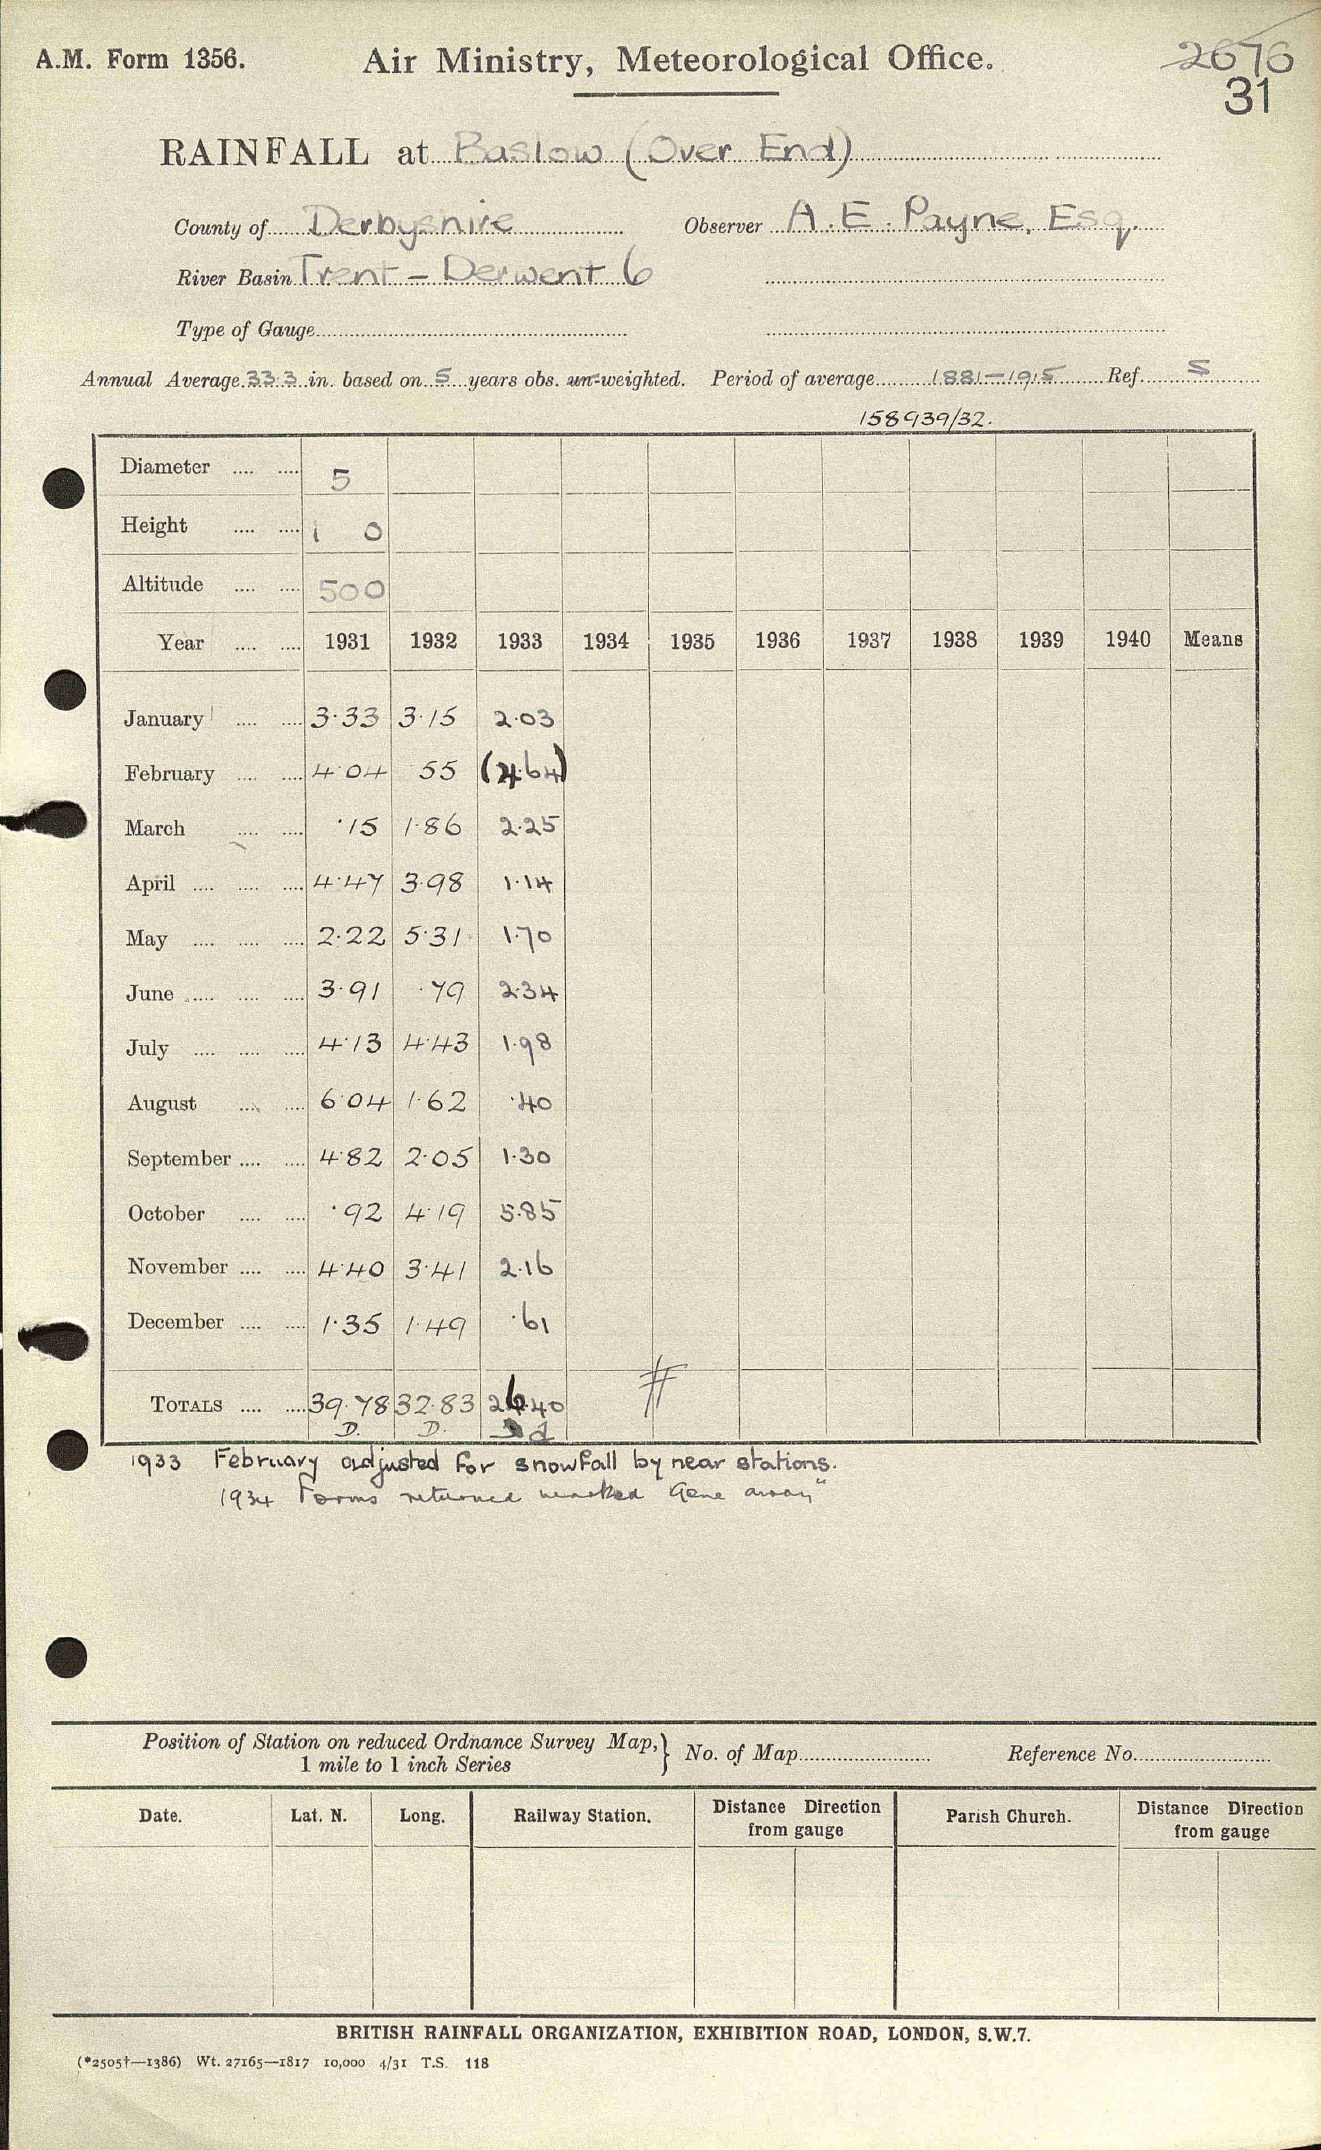 A.M. Form 1356. Air Ministry, Meteorological Office. 2676
31
RAINFALL at Baslow (Over End)
County of Derbyshire Observer A. E. Payne, Esq.
River Basin Trent - Derwent 6
Type of Gauge
Annual Average 33.3 in. based on 5 years obs. un-weighted. Period of average 1881-1915 Ref. S
158939/32.
Diameter .... .... 5
Height .... .... 1 0
Altitude .... .... 500
Year .... .... 1931 1932 1933 1934 1935 1936 1937 1938 1939 1940 Means
January .... .... 3.33 3.15 2.03
February .... .... 4.04 55 (4.64)
March .... .... .15 1.86 2.25
April .... .... .... 4.47 3.98 1.14
May .... .... .... 2.22 5.31 1.70
June .... .... .... 3.91 .79 2.34
July .... .... .... 4.13 4.43 1.98
August .... .... 6.04 1.62 .40
September .... .... 4.82 2.05 1.30
October .... .... .92 4.19 5.85
November .... .... 4.40 3.41 2.16
December .... .... 1.35 1.49 .61
TOTALS .... .... 39.78 32.83 26.40
D. D. d
1933 February adjusted for snowfall by near stations.
1934 Forms returned marked Gone away"
Position of Station on reduced Ordnance Survey Map,} No. of Map Reference No.
1 mile to 1 inch Series
Date. Lat. N. Long. Railway Station. Distance Direction from gauge Parish Church. Distance Direction from gauge
BRITISH RAINFALL ORGANIZATION, EXHIBITION ROAD, LONDON, S.W.7.
(*2505†—1386) Wt. 27165—1817 10,000 4/31 T.S. 118